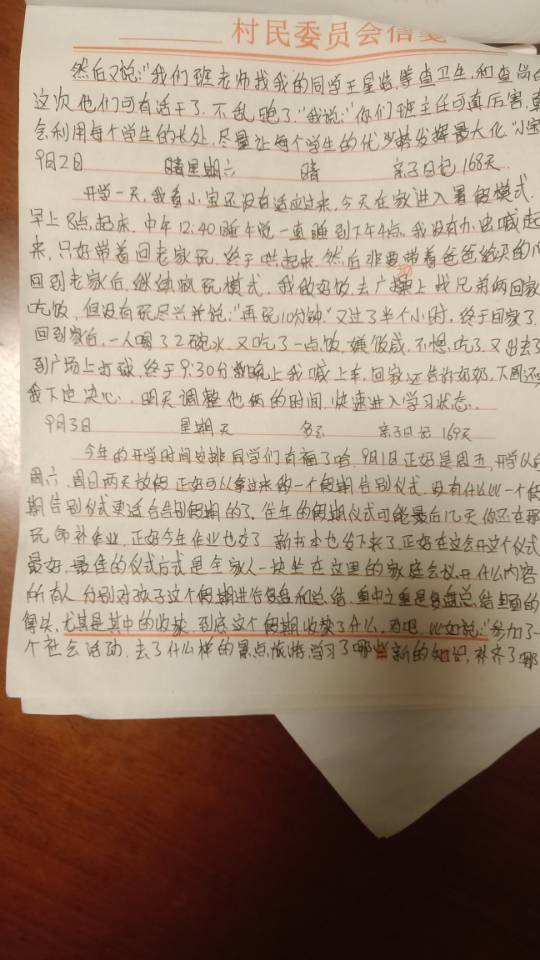 村民委员会信笺
然后又说:"我们班老师找我的同学王星皓等查卫生,和查岗
这次他们可有活干了.不乱跑了."我说:"你们班主任可真厉害,
会利用每个学生的长处,尽量让每个学生的优势发挥最大化."小宝
9月2日 晴星期六 晴 亲子日记168天
开学一天,我看小宝还没有适应过来,今天在家进入暑假模式.
早上8点起床.中午12:40睡午觉一直睡到下午4点.我没有办法喊起
来,只好带着回老家玩.终于哄起来.然后非要带着爸爸给买的
回到老家后,继续疯玩模式.我做好饭,去广场上找兄弟两回家
吃饭,但没有玩尽兴并说:"再玩10分钟."又过了半个小时,终于回家了.
回到家后,一人喝了2碗水.又吃了一点饭,嫌饭咸,不想吃了.又出去了
到广场上打球.终于9:30分 晚上我喊上车.回家还告诉奶奶.下周还
我下定决心,明天调整他俩的时间,快速进入学习状态.
9月3日 星期天 多云 亲子日记169天
今年的开学时间安排同学们有福了哈.9月1日正好是周五,开学以后
周六.周日两天放假.正好可以拿过来做一个假期告别仪式.没有什么比一个假
期告别仪式更适合告别假期的了.往年的假期仪式可能最后几天你还在那
玩命补作业,正好今年作业也交了.新书本也发下来了.正好在这会开这个仪式
最好.最佳的仪式方式是全家人一块坐在这里的家庭会议.开什么内容
所有人分别对孩子这个假期进行复盘和总结.重中之重是复盘总结里面的
得失.尤其是其中的收获.到底这个假期收获了什么,对吧.比如说:"参加了一
个社会活动.去了什么样的景点旅游,学习了哪些新的知识,补齐了哪